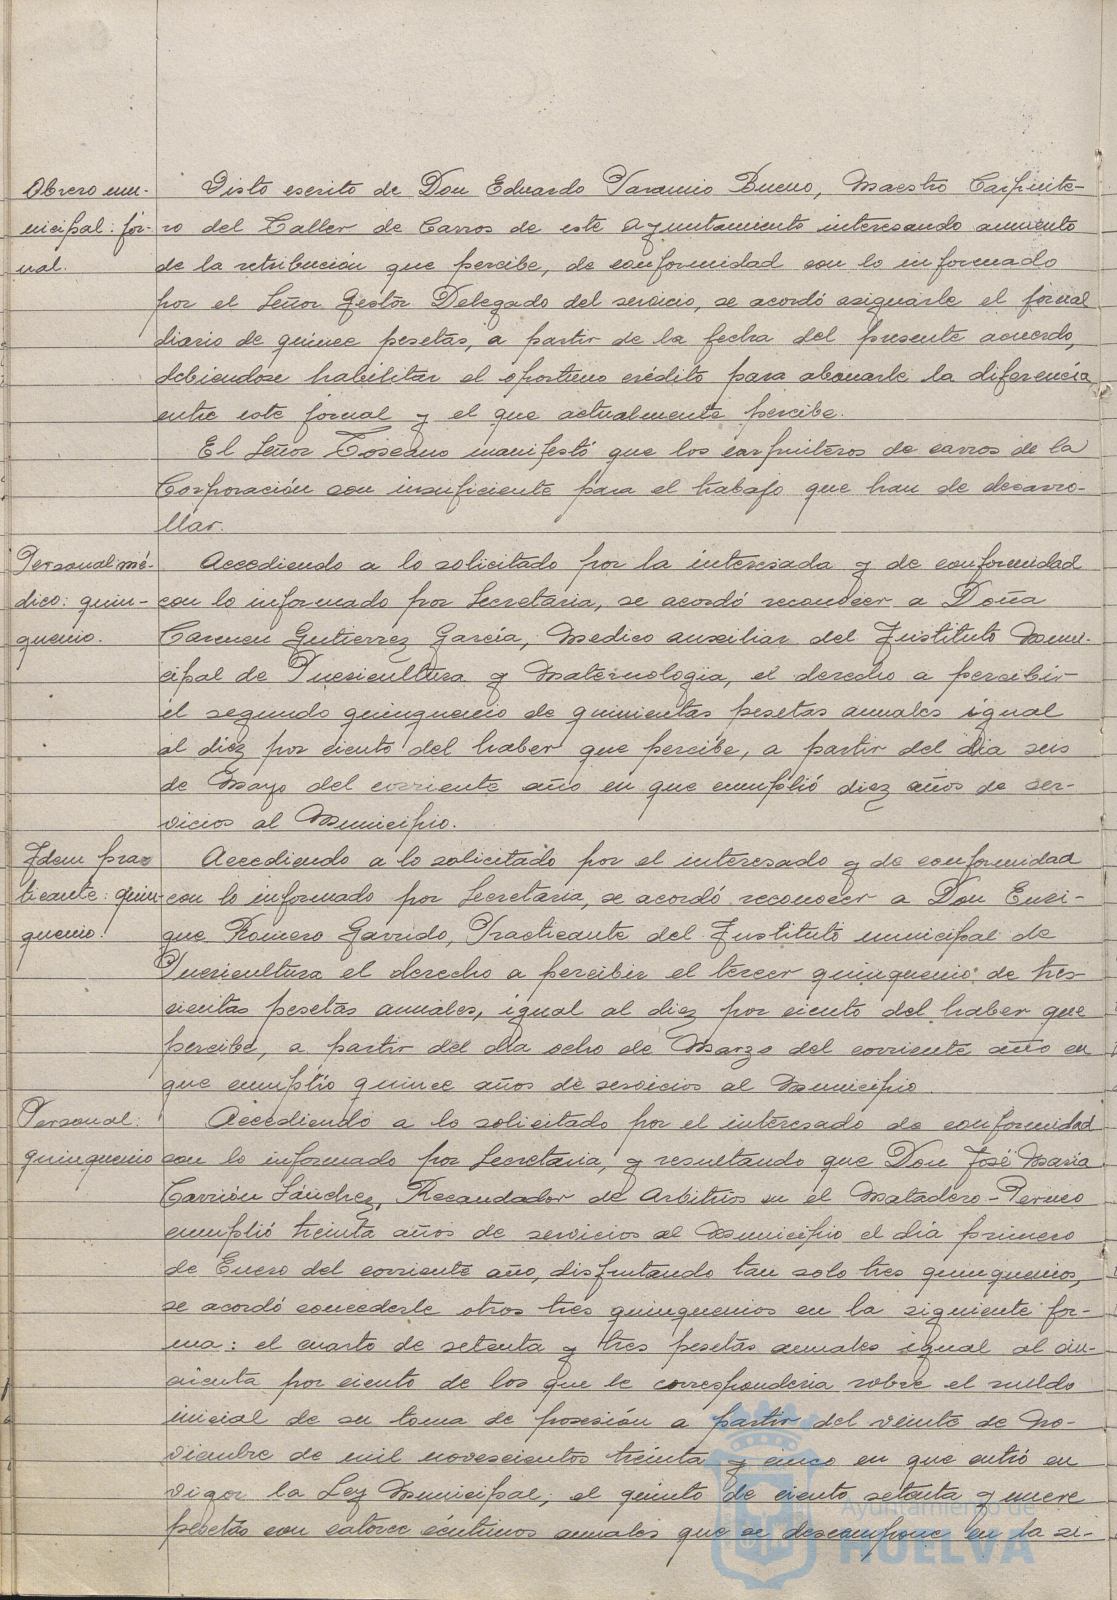 Obrero mu-
nicipal: jor-
nal.
Visto escrito de Don Eduardo Taramio Bueno, Maestro Carpinte-
ro del Taller de Carros de este Ayuntamiento interesando aumento
de la retribución que percibe, de conformidad con lo informado
por el Señor Gestor Delegado del servicio, se acordó asignarle el jornal
diario de quince pesetas, a partir de la fecha del presente acuerdo,
debiendose habilitar el oportuno crédito para abonarle la diferencia
entre este jornal y el que actualmente percibe.
El Señor Toscano manifestó que los carpinteros de carros de la
Corporación son insuficiente para el trabajo que han de desarro-
llar.
Personal mé-
dico: quin-
quenio.
Accediendo a lo solicitado por la interesada y de conformidad
con lo informado por Secretaria, se acordó reconocer a Doña
Carmen Gutierrez García, Medico auxiliar del Instituto Muni-
cipal de Puericultura y Maternologia, el derecho a percibir
el segundo quinquenio de quinientas pesetas anuales igual
al diez por ciento del haber que percibe, a partir del dia seis
de Mayo del corriente año en que cumplió diez años de ser-
vicios al Municipio.
Idem prac
ticante: quin-
quenio.
Accediendo a lo solicitado por el interesado y de conformidad
con lo informado por Secretaria, se acordó reconocer a Don Enri-
que Romero Garrido, Practicante del Instituto municipal de
Puericultura el derecho a percibir el tercer quinquenio de tres-
cientas pesetas anuales, igual al diez por ciento del haber que
percibe, a partir del día ocho de Marzo del corriente año en
que cumplió quince años de servicios al Municipio
Personal:
quinquenio
Accediendo a lo solicitado por el interesado de conformidad
con lo informado por Secretaria, y resultando que Don José Maria
Carrión Sánchez, Recaudador de Arbitrios en el Matadero-Perneo
cumplió treinta años de servicios al Municipio el día primero
de Enero del corriente año, disfrutando tan solo tres quinquenios,
se acordó concederle otros tres quinquenios en la siguiente for-
ma: el cuarto de setenta y tres pesetas anuales igual al cin-
cuenta por ciento de los que le correspondería sobre el sueldo
inicial de su toma de posesión a partir del veinte de No-
viembre de mil novescientos treinta y cinco en que entró en
vigor la Ley Municipal; el quinto de ciento setenta y nueve
pesetas con catorce céntimos anuales que se descompone en la si-
Ayuntamiento de
HUELVA